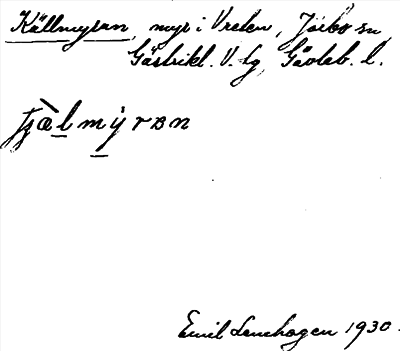 Källmyran, myr i Vreten, Järbo sn,
Gästrikl. V. tg, Gävleb. l.
tjælmyran
Emil Lenhagen 1930.